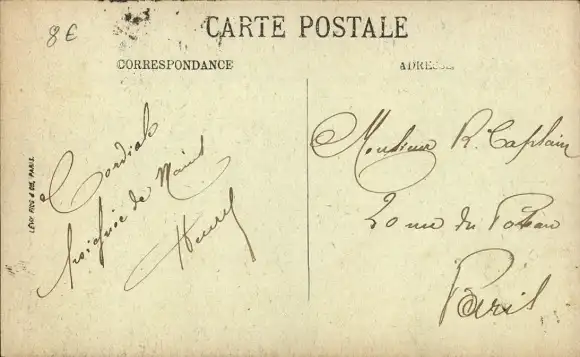 8 €
CARTE POSTALE
CORRESPONDANCE
ADRESSE
LEVY FILS & CIE, PARIS.
Cordiale
poignée de Mains
Monsieur R. Caplain
20 rue du Poteau
Paris